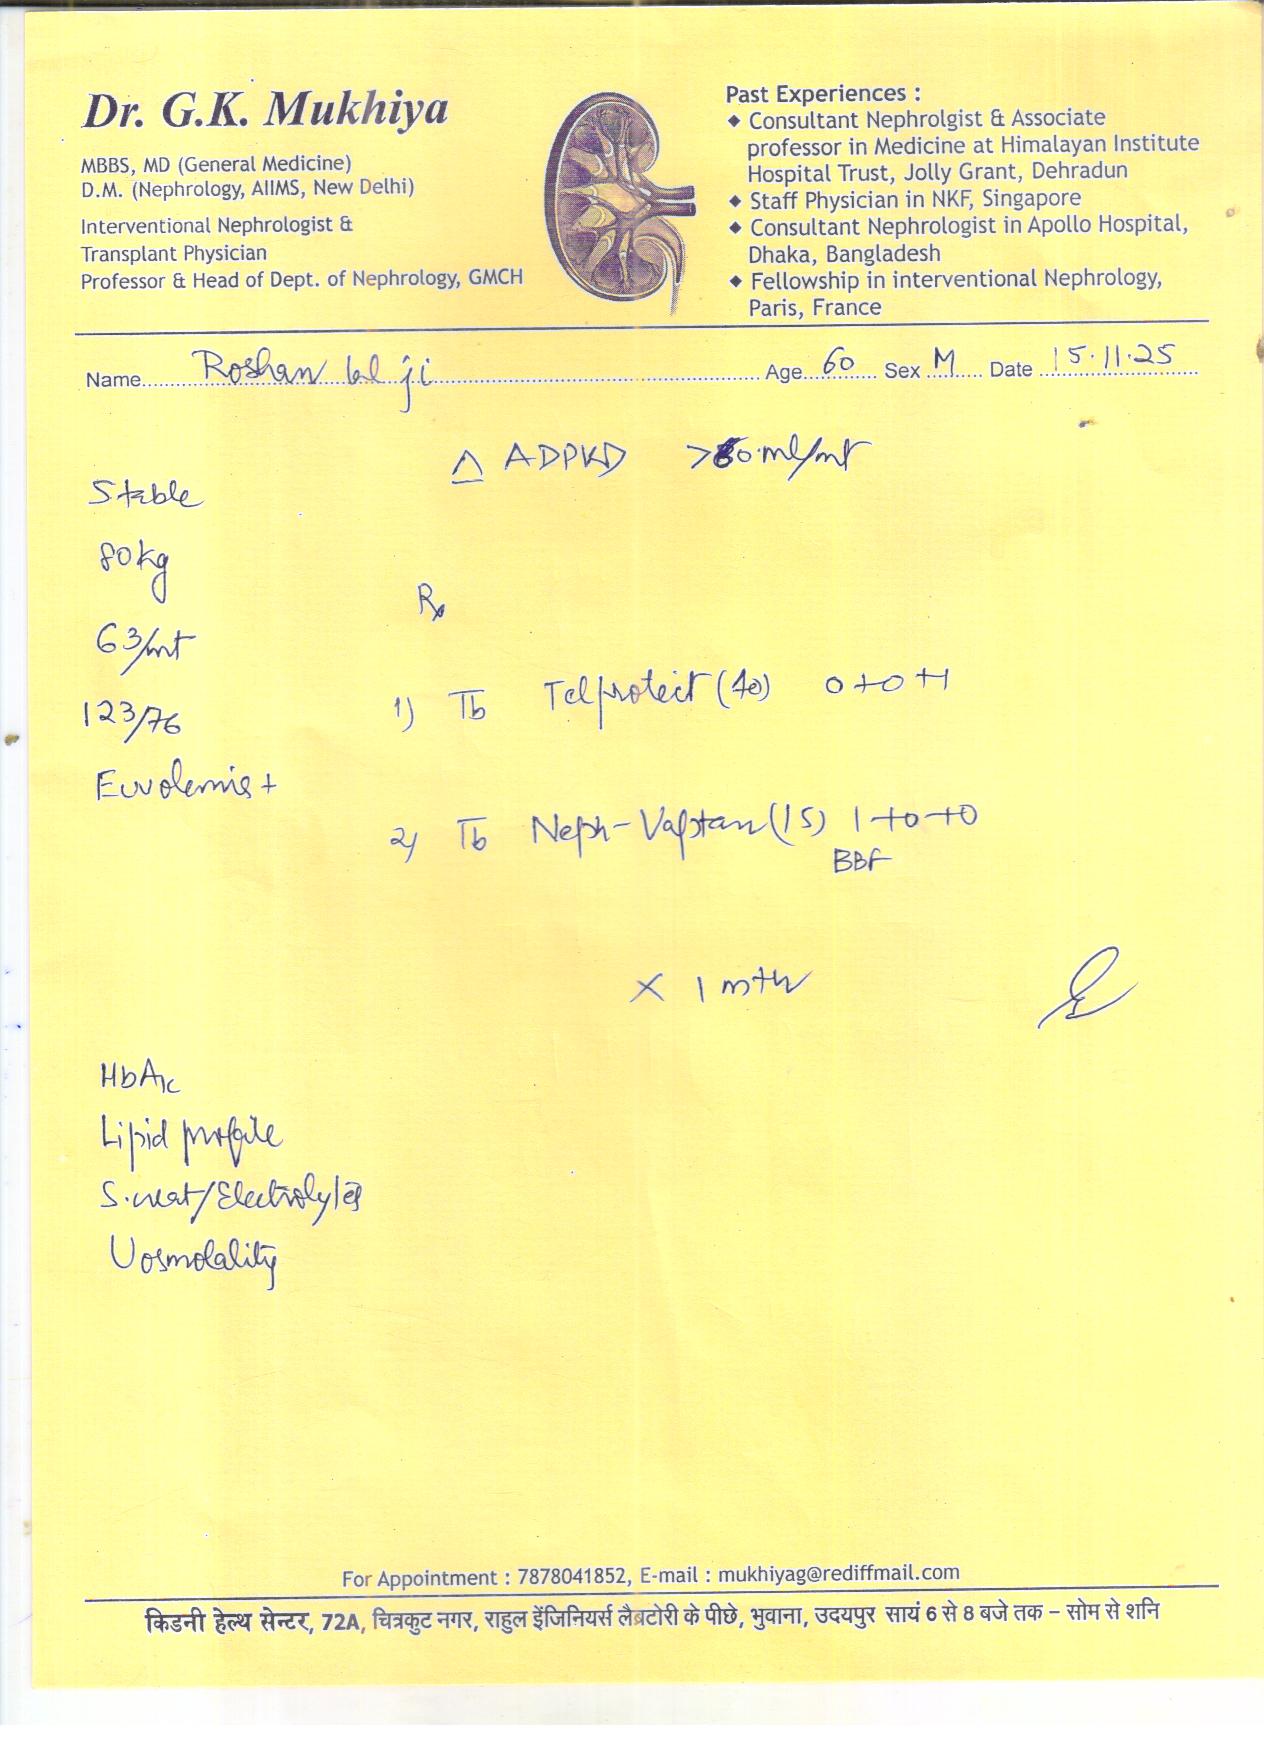 Dr. G.K. Mukhiya
MBBS, MD (General Medicine)
D.M. (Nephrology, AIIMS, New Delhi)
Interventional Nephrologist &
Transplant Physician
Professor & Head of Dept. of Nephrology, GMCH
Past Experiences :
◆ Consultant Nephrolgist & Associate
professor in Medicine at Himalayan Institute
Hospital Trust, Jolly Grant, Dehradun
◆ Staff Physician in NKF, Singapore
◆ Consultant Nephrologist in Apollo Hospital,
Dhaka, Bangladesh
◆ Fellowship in interventional Nephrology,
Paris, France
Name Roshan lal ji Age 60 Sex M Date 15.11.25
△ ADPKD >60 ml/mt
Stable
80kg
63/mt
123/76
Euvolemia +
Rx
1) Tb Telprotect (40) 0+0+1
2) Tb Neph-Vaptan (15) 1+0+0
BBF
x 1 mth
HbA1c
Lipid profile
S.creat/Electrolytes
Uosmolality
For Appointment : 7878041852, E-mail : mukhiyag@rediffmail.com
किडनी हेल्थ सेन्टर, 72A, चित्रकुट नगर, राहुल इंजिनियर्स लैबटोरी के पीछे, भुवाना, उदयपुर सायं 6 से 8 बजे तक – सोम से शनि